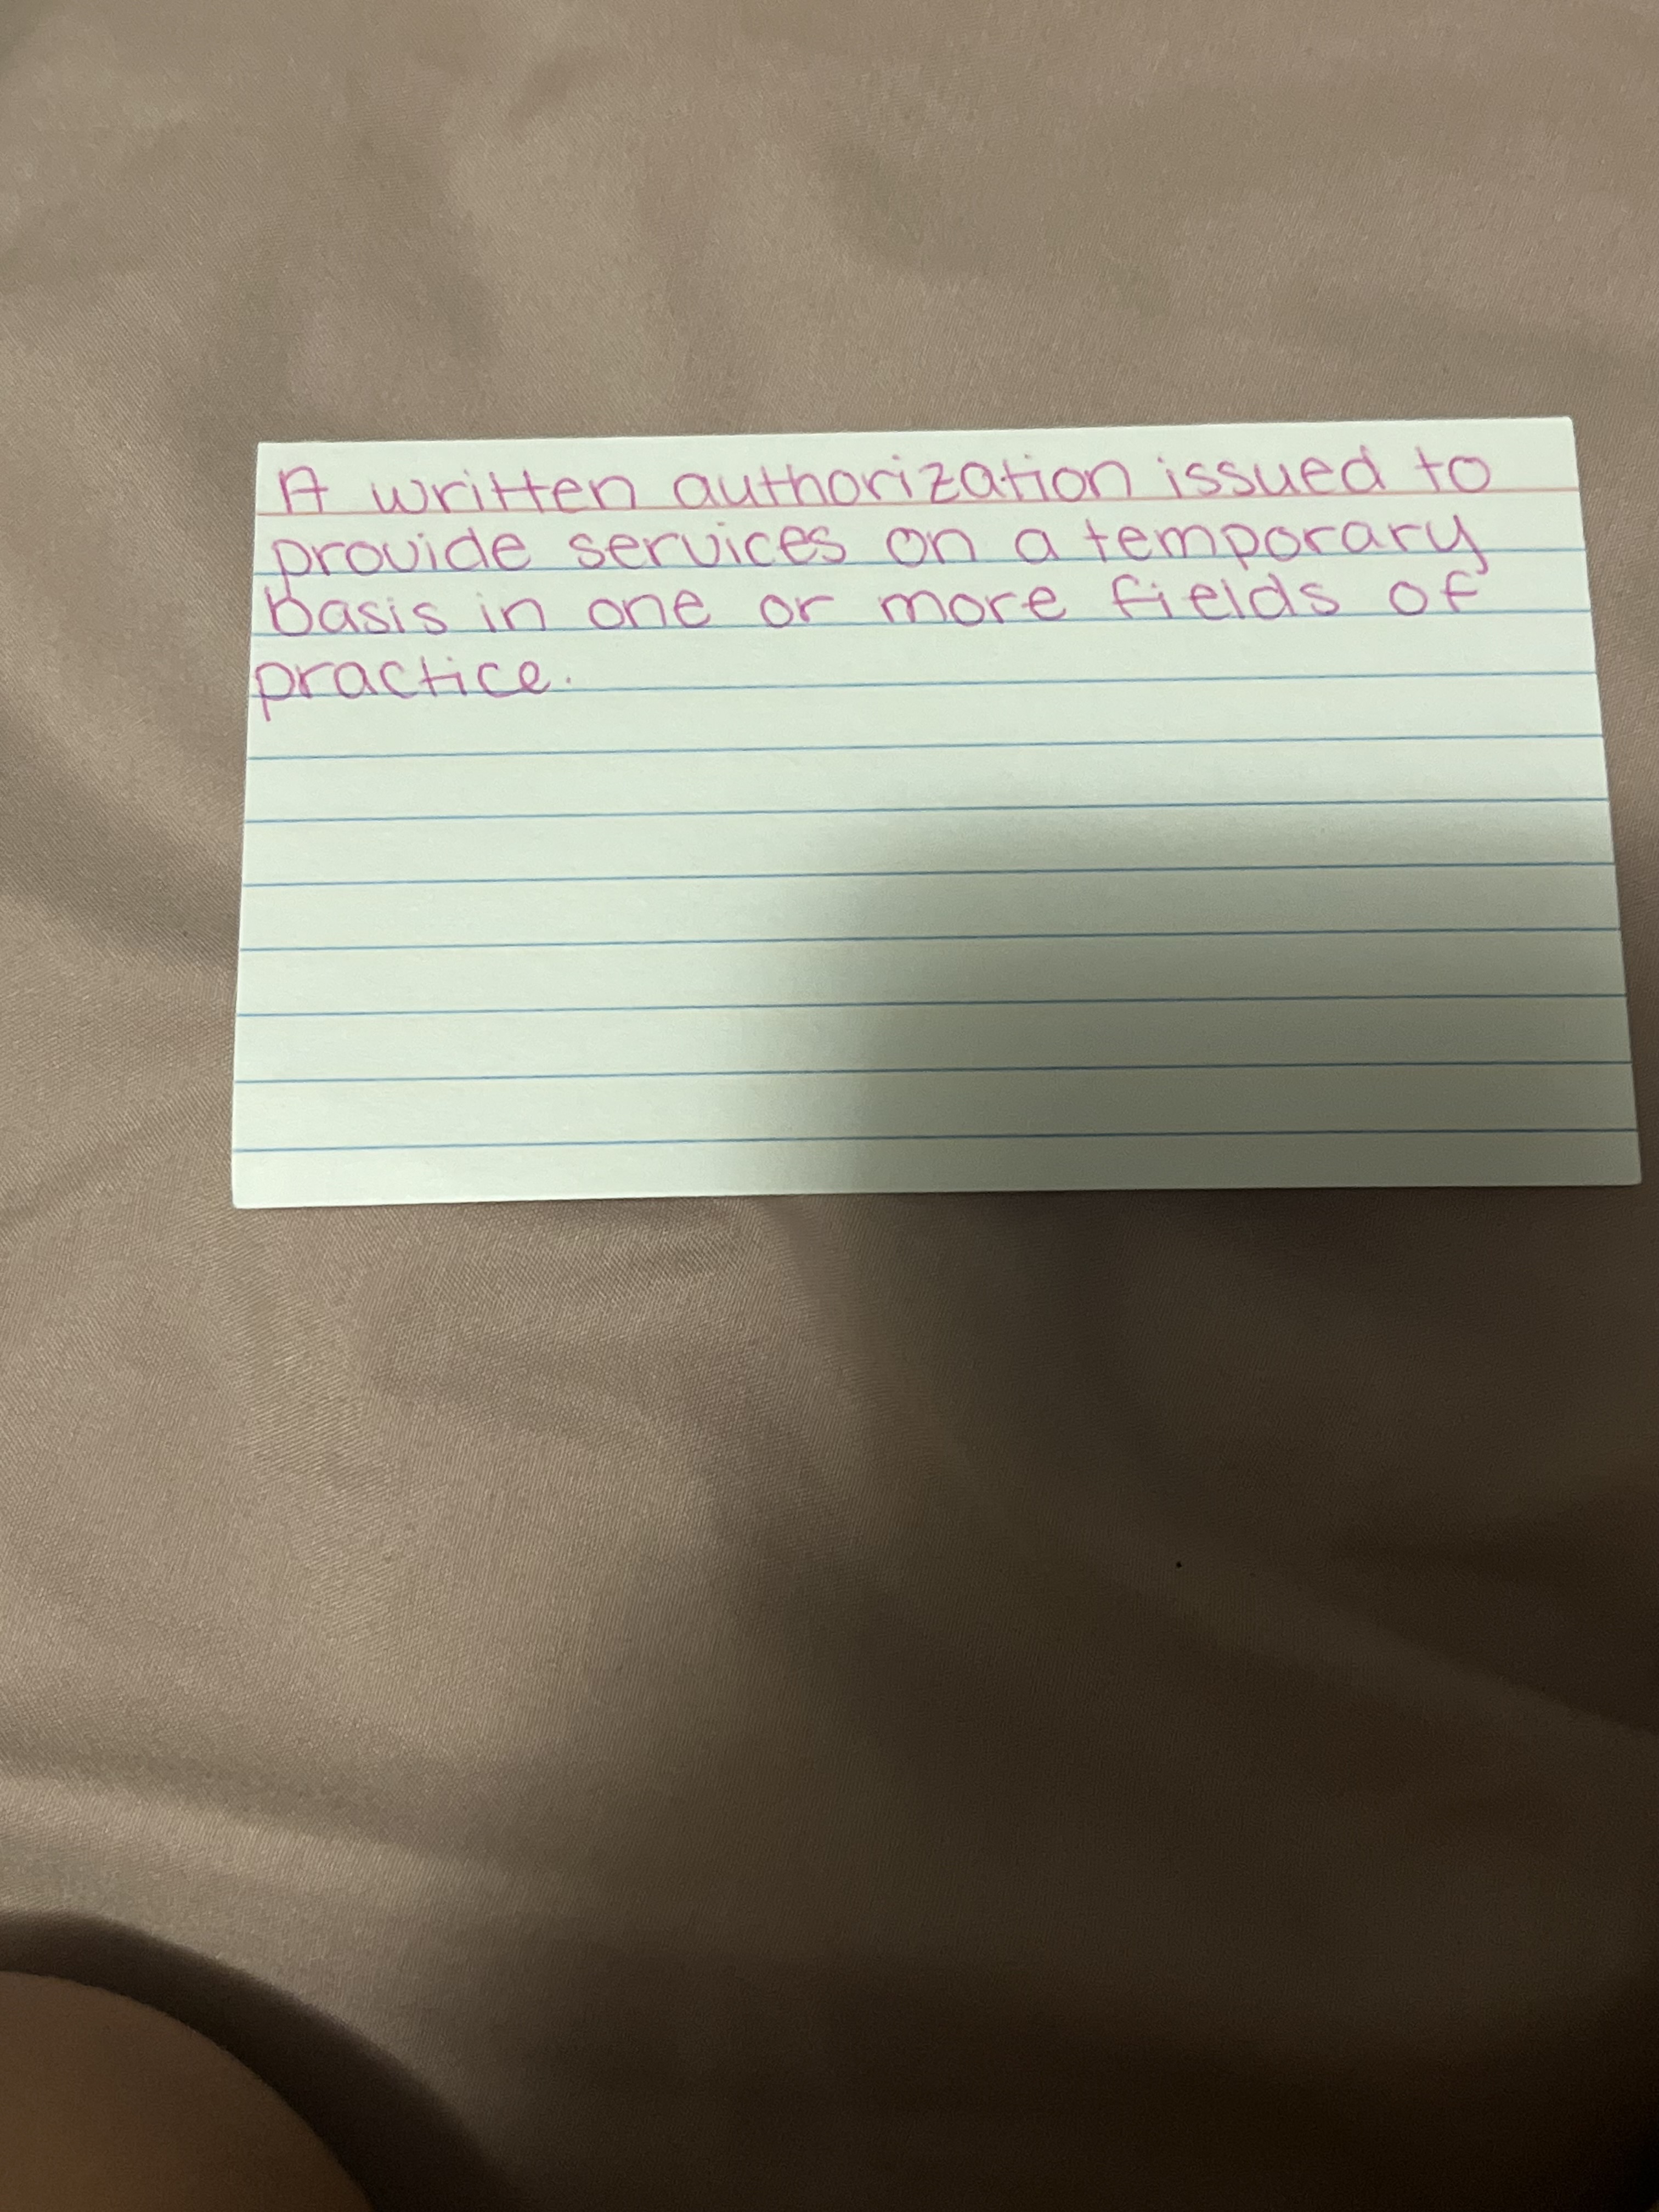 A written authorization issued to
provide services on a temporary
basis in one or more fields of
practice.